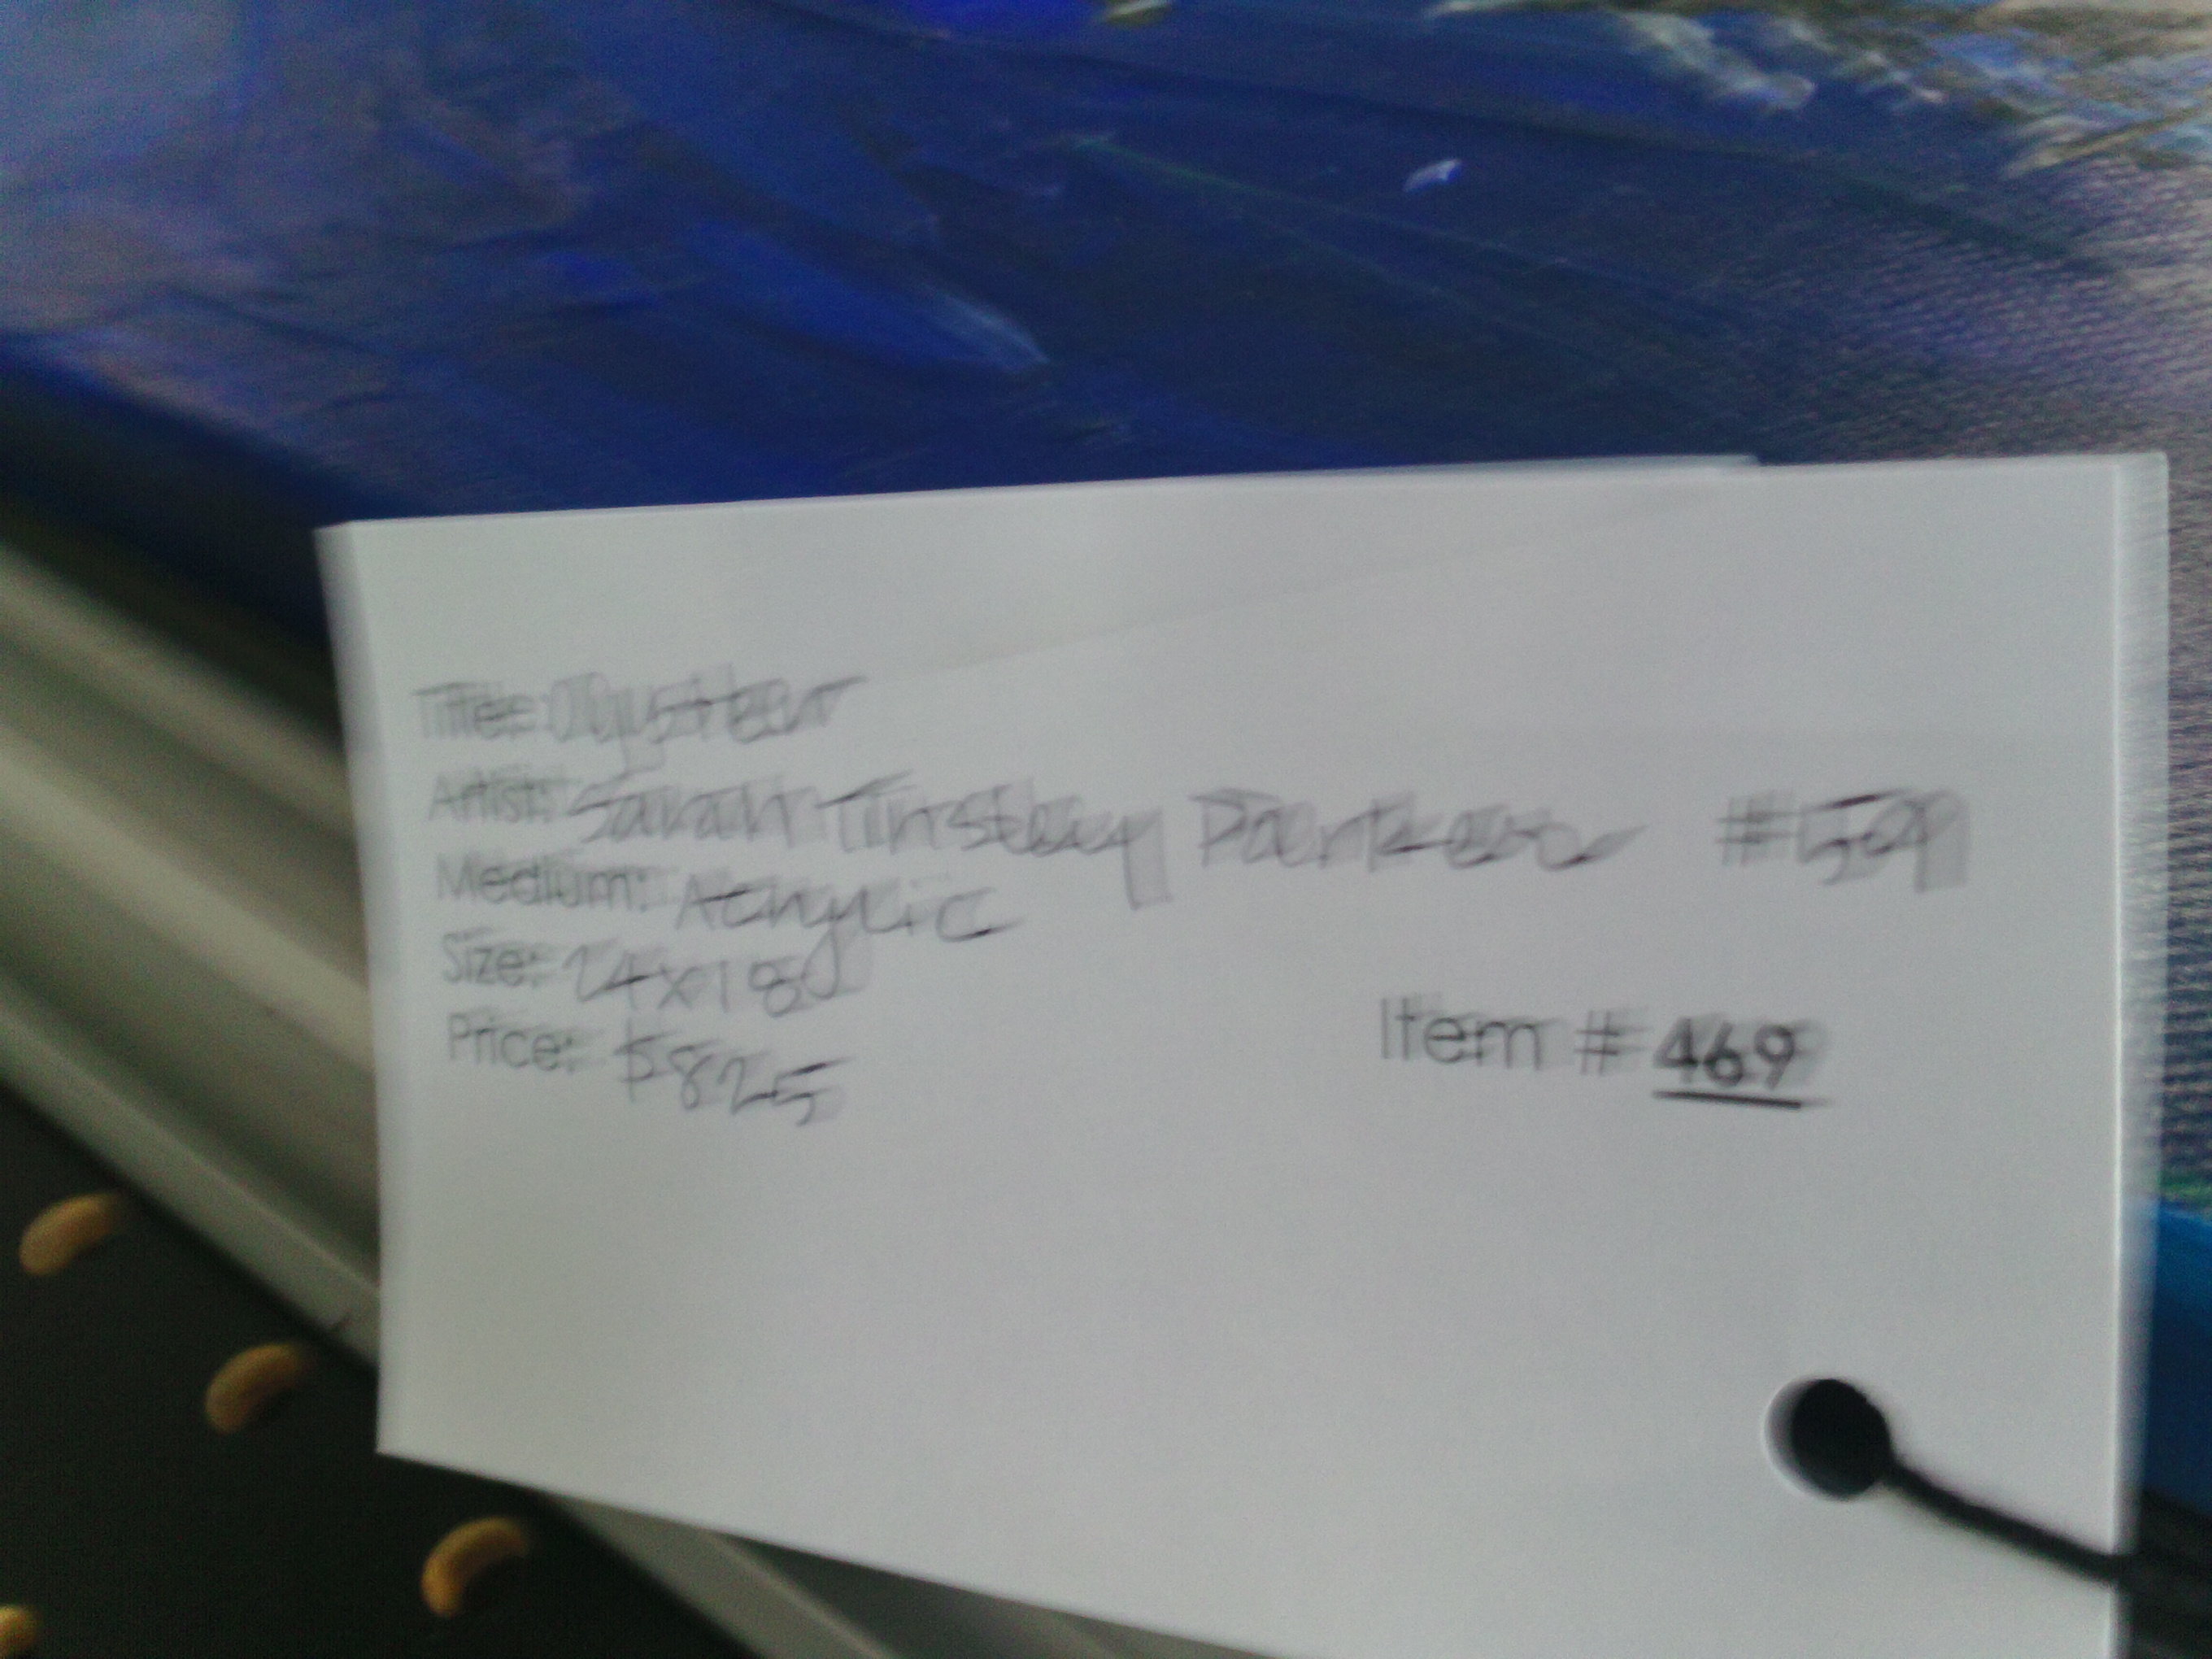 Title: Oyster
Artist: Sarah Tinsley Parker #59
Medium: Acrylic
Size: 24x18
Price: $825
Item # 469